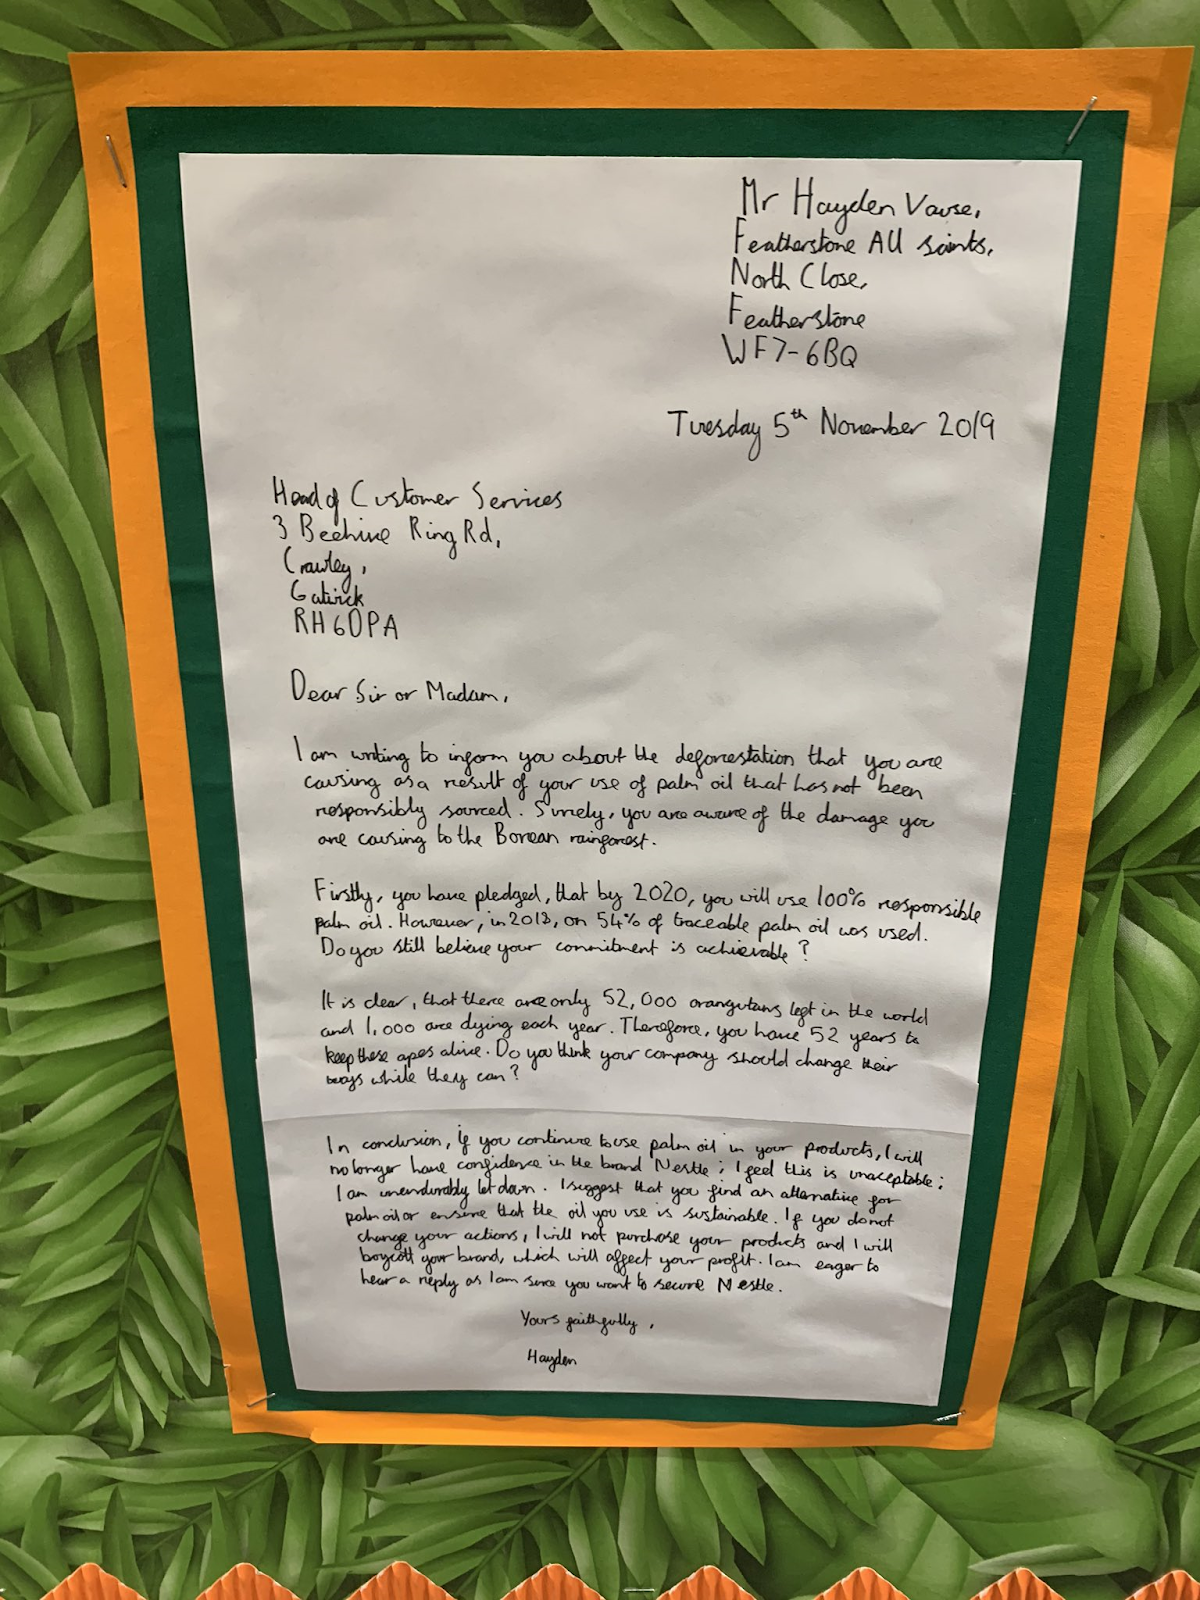 Mr Hayden Vause,
Featherstone All saints,
North Close,
Featherstone
WF7-6BQ
Tuesday 5th November 2019
Head of Customer Services
3 Beehive Ring Rd,
Crawley,
Gatwick
RH6 0PA
Dear Sir or Madam,
I am writing to inform you about the deforestation that you are
causing as a result of your use of palm oil that has not been
responsibly sourced. Surely, you are aware of the damage you
are causing to the Borean rainforest.
Firstly, you have pledged, that by 2020, you will use 100% responsible
palm oil. However, in 2018, on 54% of traceable palm oil was used.
Do you still believe your commitment is achievable?
It is clear, that there are only 52,000 orangutans left in the world
and 1,000 are dying each year. Therefore, you have 52 years to
keep these apes alive. Do you think your company should change their
ways while they can?
In conclusion, if you continue to use palm oil in your products, I will
no longer have confidence in the brand Nestle; I feel this is unaceptable;
I am unendurably let down. I suggest that you find an alternative for
palm oil or ensure that the oil you use is sustainable. If you do not
change your actions, I will not purchase your products and I will
boycott your brand, which will affect your profit. I am eager to
hear a reply as I am sure you want to secure Nestle.
Yours faithfully,
Hayden